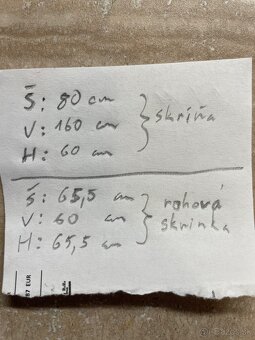 Š: 80 cm
V: 160 cm
H: 60 cm
skriňa
Š: 65,5 cm
V: 60 cm
H: 65,5 cm
rohová
skrinka
87 EUR